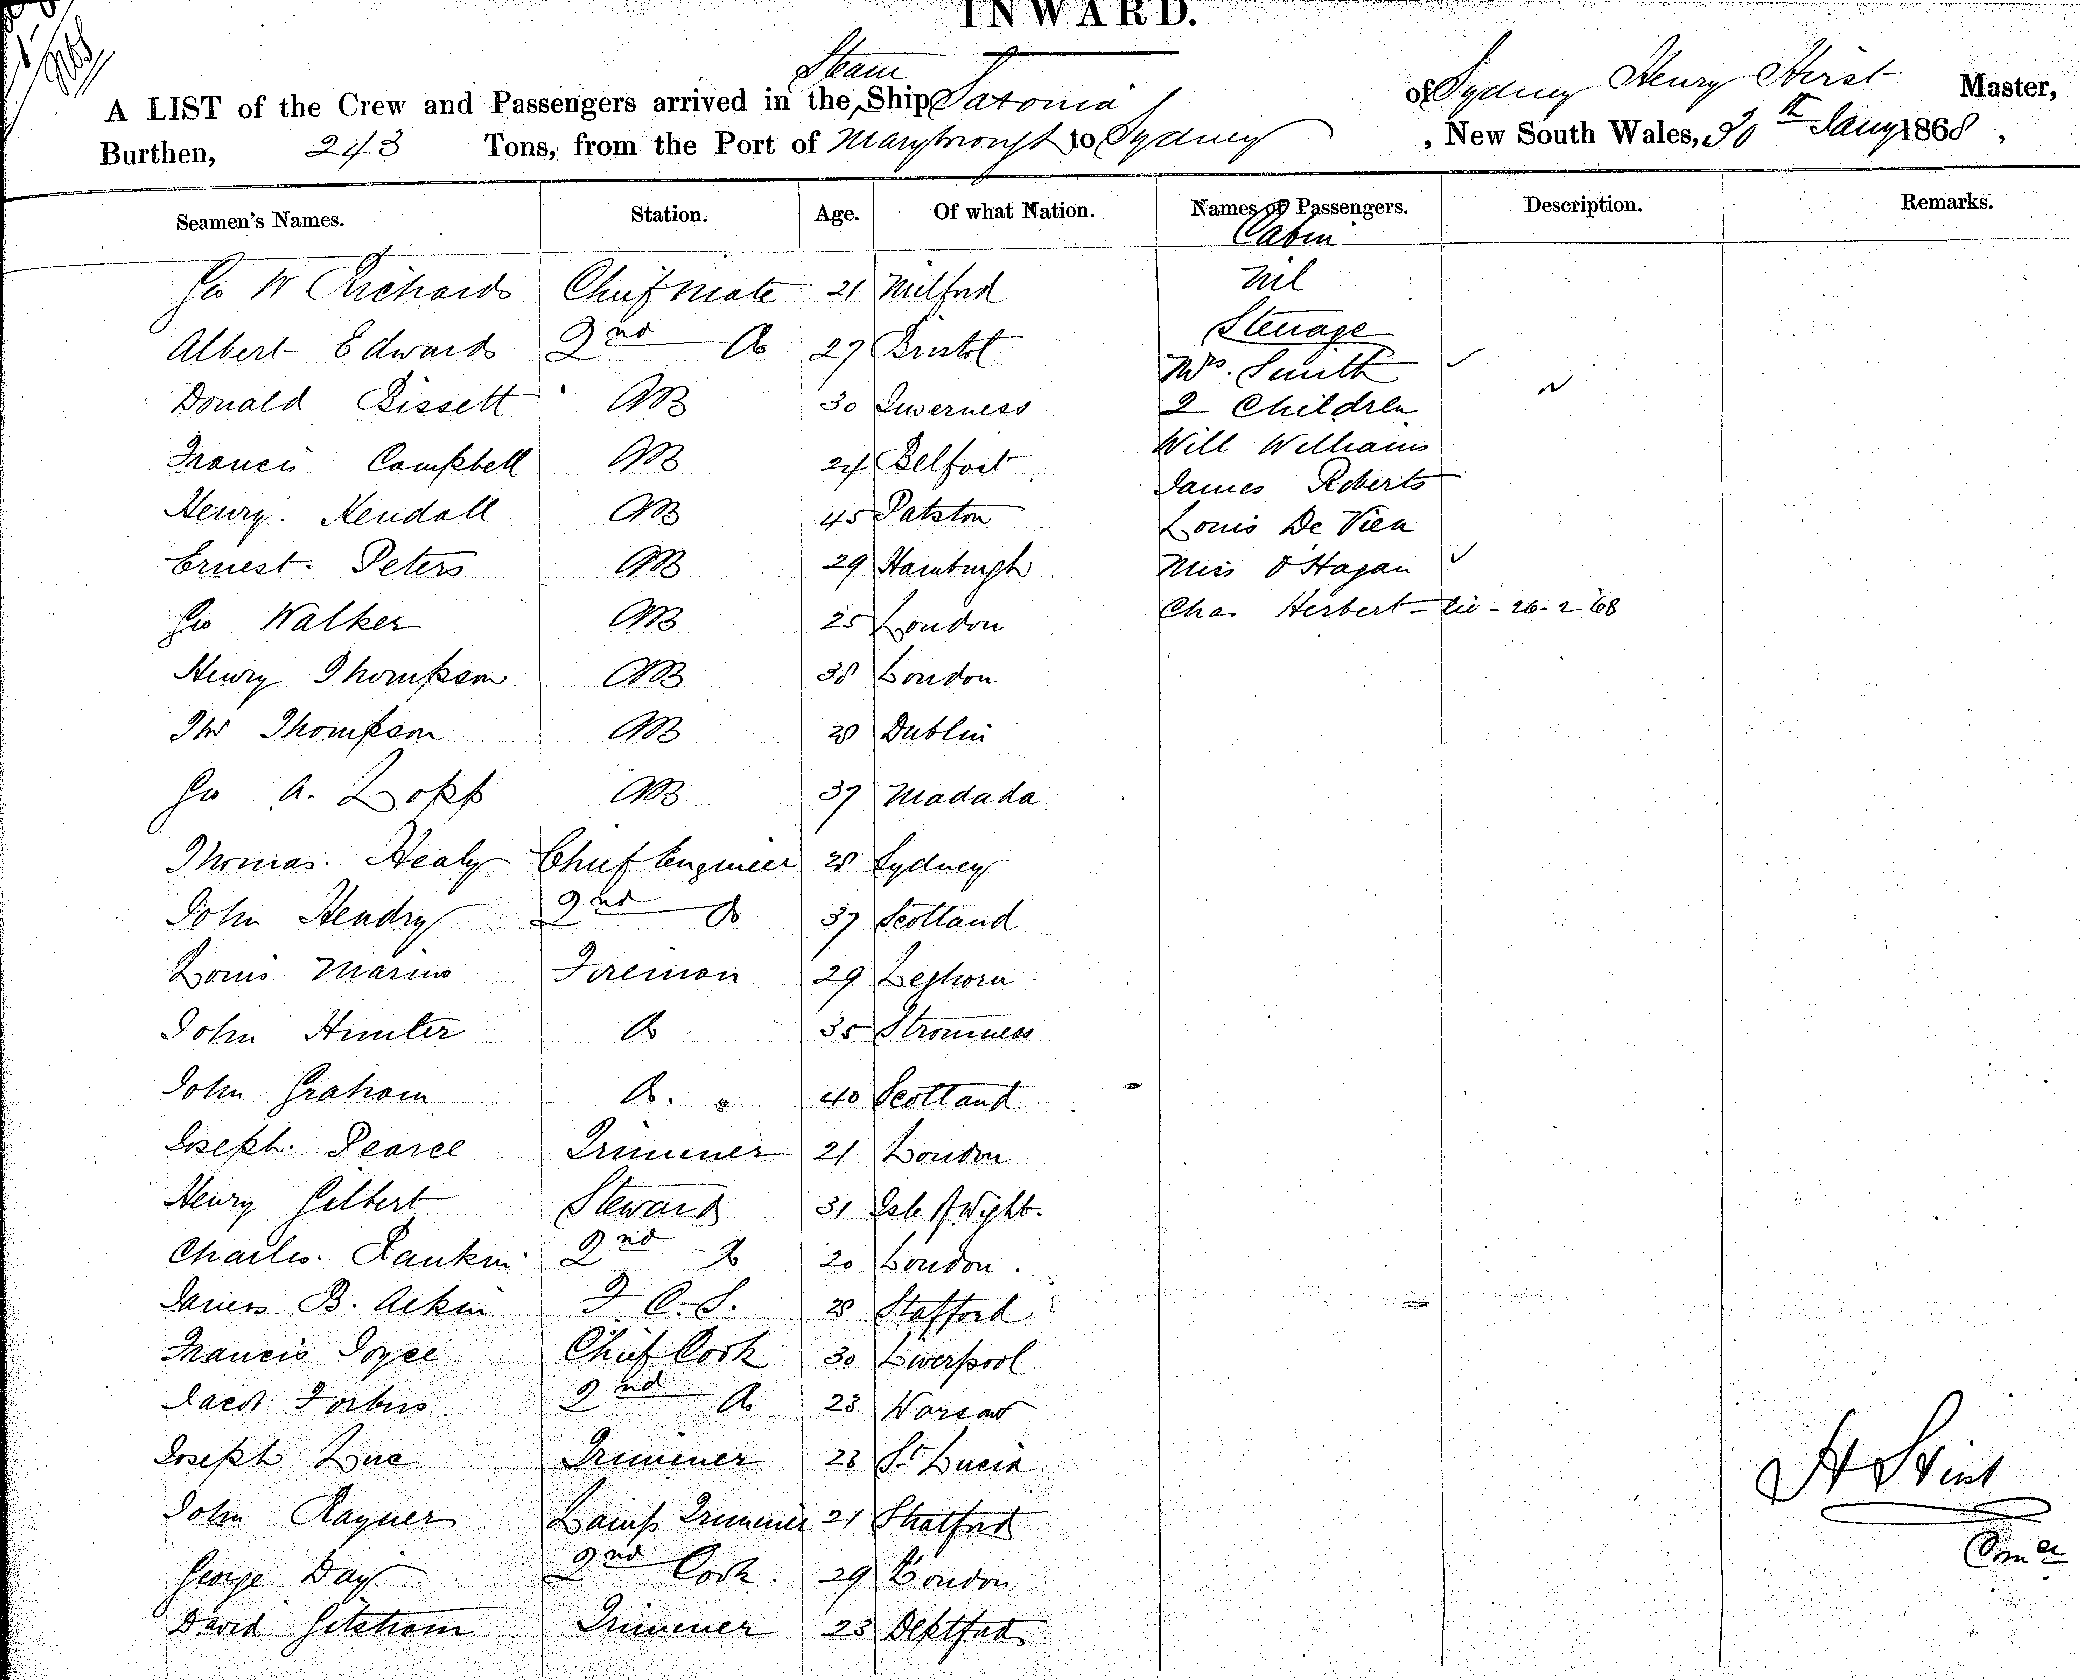 INWARD.
A LIST of the Crew and Passengers arrived in the Steam Ship Saxonia of Sydney Henry Hirst Master,
Burthen, 243 Tons, from the Port of Maryborough to Sydney, New South Wales, 30th Jany 1868,
Seamen's Names. Station. Age. Of what Nation. Names of Passengers. Description. Remarks.
Cabin
Geo W Richards Chief Mate 21 Milford Nil
Steerage
Albert Edwards 2nd Do 27 Bristol Mrs. Smith
Donald Bissett AB 30 Inverness 2 Children
Francis Campbell AB 24 Belfast Will Williams
James Roberts
Henry Kendall AB 45 Louis De Vien
Ernest Peters AB 29 Hamburgh Miss O'Hagan
Geo Walker AB 25 London Chas Herbert - 26-2-68
Henry Thompson AB 38 London
Thos Thompson AB 28 Dublin
Geo A. Lopp AB 37 Madada
Thomas Healy Chief Engineer 28 Sydney
John Hendry 2nd Do 37 Scotland
Louis Marino Fireman 29 Leghorn
John Hunter Do 35 Stromness
John Graham Do. 40 Scotland
Joseph Pearce Trimmer 21 London
Henry Gilbert Steward 31 Isle of Wight.
Charles Rankin 2nd Do 20 London.
James B. Aikin F C. S. 28 Stafford
Francis Joyce Chief Cook 30 Liverpool
Jacob Forbus 2nd Do 23 Warsaw
Joseph Luc Trimmer 23 St Lucia
John Rayner Lamp Trimmer 21 Stratford
George Day 2nd Cook 29 London
David Gilsham Trimmer 23 Deptford
H Hirst
Comer